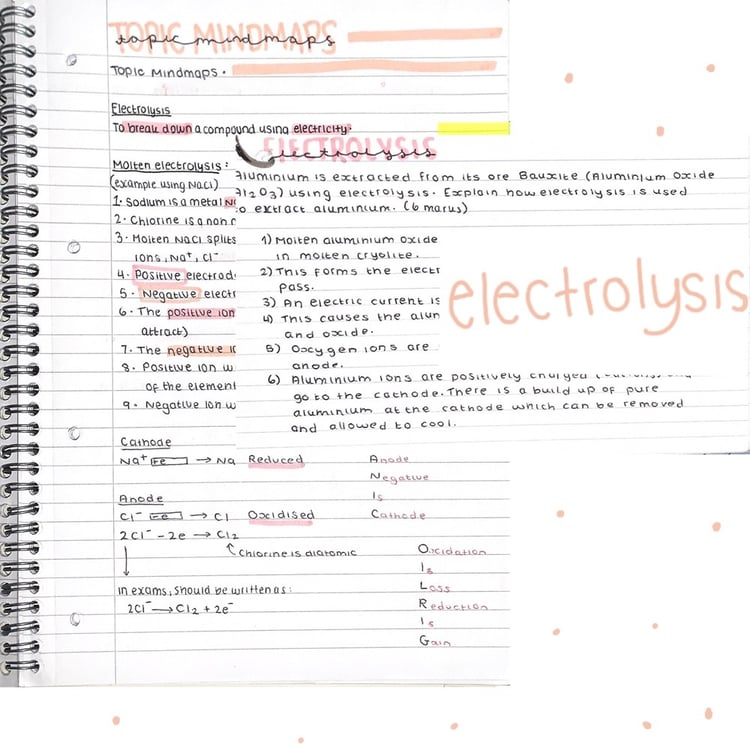 TOPIC MINDMAPS
topic mindmaps
Topic Mindmaps.
Electrolysis
To break down a compound using electricity.
Molten electrolysis:
(example using NaCl)
1. Sodium is a metal
2. Chlorine is a non
3. Molten NaCl splits
ions, Na⁺, Cl⁻
4. Positive electrod
5. Negative electr
6. The positive ion
attract)
7. The negative
8. Positive ion w
of the element
9. Negative ion w
ELECTROLYSIS
electrolysis
Aluminium is extracted from its ore Bauxite (Aluminium Oxide
Al2O3) using electrolysis. Explain how electrolysis is used
to extract aluminium. (6 marks)
1) Molten aluminium oxide
in molten cryolite.
2) This forms the electr
pass.
3) An electric current is
4) This causes the alum
and oxide.
5) Oxygen ions are
anode.
6) Aluminium ions are positively charged
go to the cathode. There is a build up of pure
aluminium at the cathode which can be removed
and allowed to cool.
electrolysis
Cathode
Na⁺ +e → Na Reduced
Anode
Cl⁻ -e → Cl Oxidised
2Cl⁻ - 2e → Cl2
↑ Chlorine is diatomic
In exams, should be written as:
2Cl⁻ → Cl2 + 2e⁻
Anode
Negative
Is
Cathode
Oxidation
Is
Loss
Reduction
Is
Gain